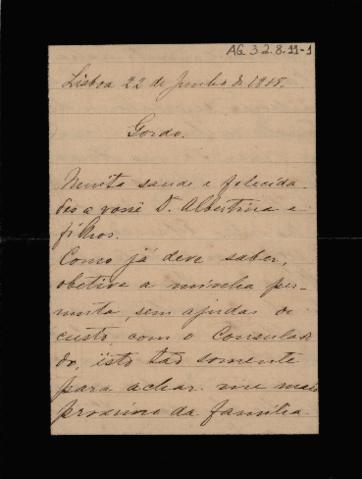 AG 3 2.8.11-1
Lisboa 22 de Junho de 1918.
Gordo.
Muita saude e felecida-
des a você D. Albertina e
filhos.
Como já deve saber,
obtive a minha per-
muta, sem ajudas de
custo, com o Consulado
do, isto tão somente
para achar me mais
proximo da familia